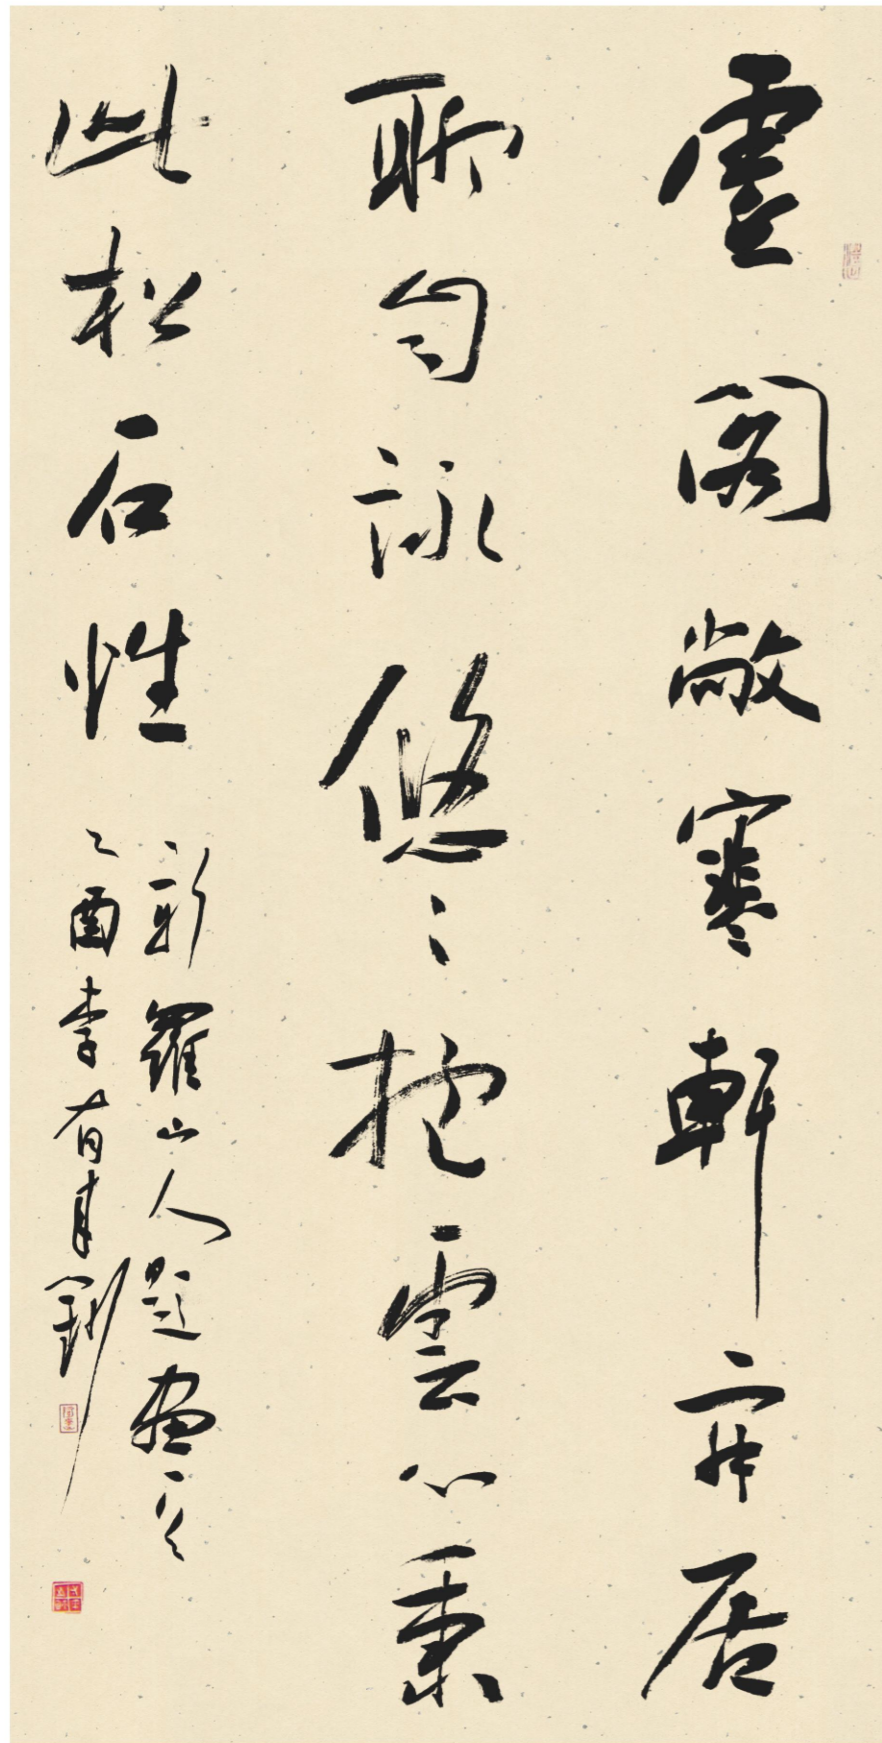 虛閣敞寒軒居
聊自詠悠〻抱雲心秉
此松石性
新羅山人題畫
乙酉李有來